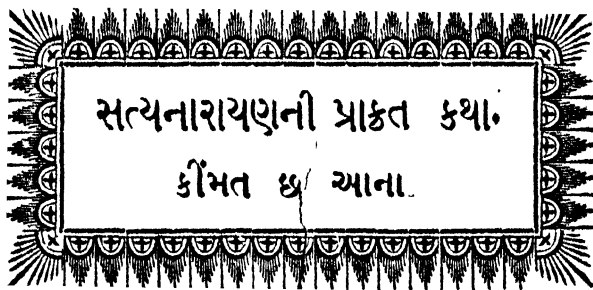 સત્યનારાયણની પ્રાકૃત કથા.
કીંમત છ આના